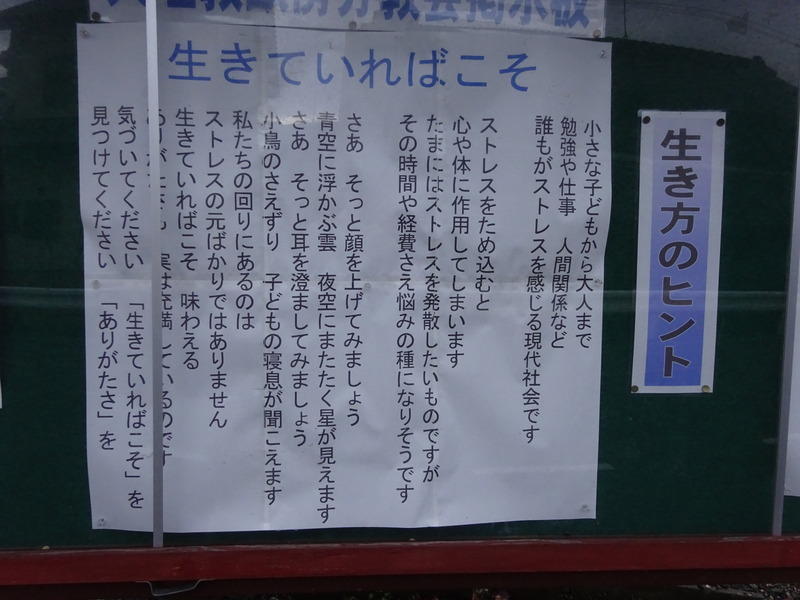 教会掲示板
生きていればこそ
小さな子どもから大人まで
勉強や仕事　人間関係など
誰もがストレスを感じる現代社会です
ストレスをため込むと
心や体に作用してしまいます
たまにはストレスを発散したいものですが
その時間や経費さえ悩みの種になりそうです
さあ　そっと顔を上げてみましょう
青空に浮かぶ雲　夜空にまたたく星が見えます
さあ　そっと耳を澄ましてみましょう
小鳥のさえずり　子どもの寝息が聞こえます
私たちの回りにあるのは
ストレスの元ばかりではありません
生きていればこそ　味わえる
ありがたさも　実は充満しているのです
気づいてください　「生きていればこそ」を
見つけてください　「ありがたさ」を
生き方のヒント